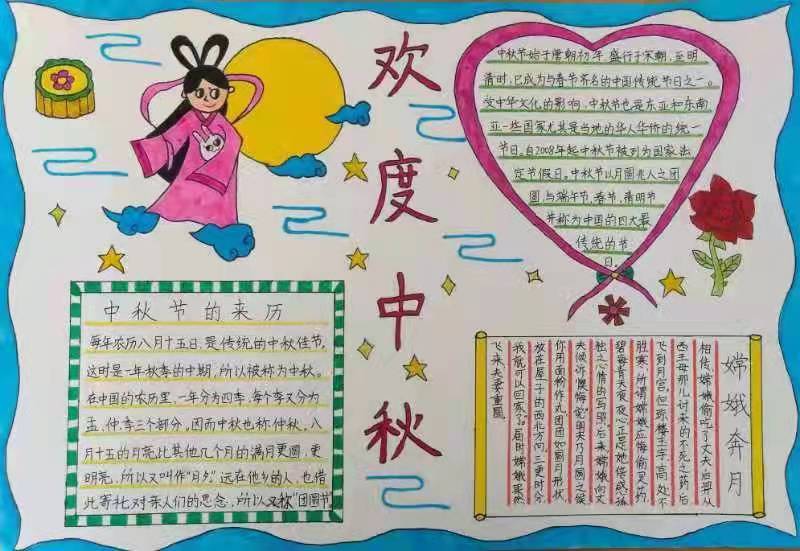 欢度中秋
中秋节始于唐朝初年,盛行于宋朝,至明
清时,已成为与春节齐名的中国传统节日之一。
受中华文化的影响,中秋节也是东亚和东南
亚一些国家尤其是当地的华人华侨的统一
节日。自2008年起中秋节被列为国家法
定节假日。中秋节以月圆兆人之团
圆,与端午节、春节、清明节
并称为中国的四大最
传统的节
日。
中秋节的来历
每年农历八月十五日,是传统的中秋佳节,
这时是一年秋季的中期,所以被称为中秋。
在中国的农历里,一年分为四季,每个季又分为
孟、仲、季三个部分,因而中秋也称仲秋。八
月十五的月亮比其他几个月的满月更圆,更
明亮,所以又叫作“月夕”远在他乡的人,也借
此寄托对亲人们的思念,所以又称“团圆节”
嫦娥奔月
相传,嫦娥偷吃了丈夫后羿从
西王母那儿讨来的不死之药后
飞到月宫。但琼楼玉宇,高处不
胜寒,所谓嫦娥应悔偷灵药,
碧海青天夜夜心正是她倍感孤
独之心情的写照。后来,嫦娥向丈
夫倾诉懊悔说:明天乃月圆之候
你用面粉作丸,团团如圆月形状,
放在屋子的西北方向,三更时分
我就可以回家了。届时嫦娥果然
飞来,夫妻重圆。